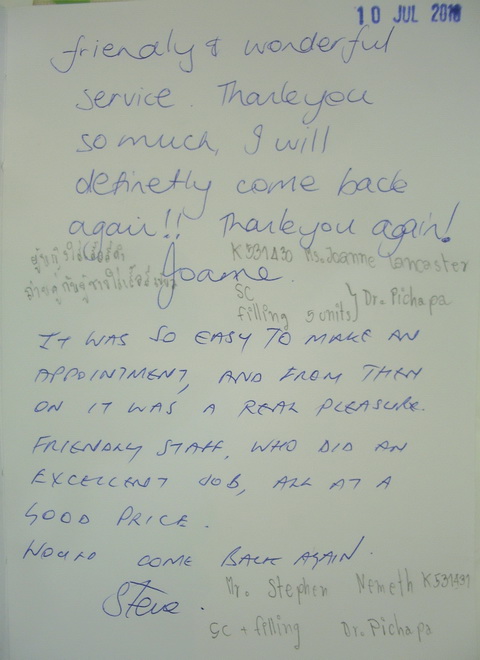 10 JUL 2018
friendly & wonderful
service. Thank you
so much, I will
definetly come back
again!! Thank you again!
Joanne.
K531430 Ms. Joanne Lancaster
SC
filling 5 units } Dr. Pichapa
IT WAS SO EASY TO MAKE AN
APPOINTMENT, AND FROM THEN
ON IT WAS A REAL PLEASURE.
FRIENDLY STAFF, WHO DID AN
EXCELLENT JOB, ALL AT A
GOOD PRICE.
WOULD COME BACK AGAIN.
Steve.
Mr. Stephen Nemeth K531431
SC + filling Dr. Pichapa